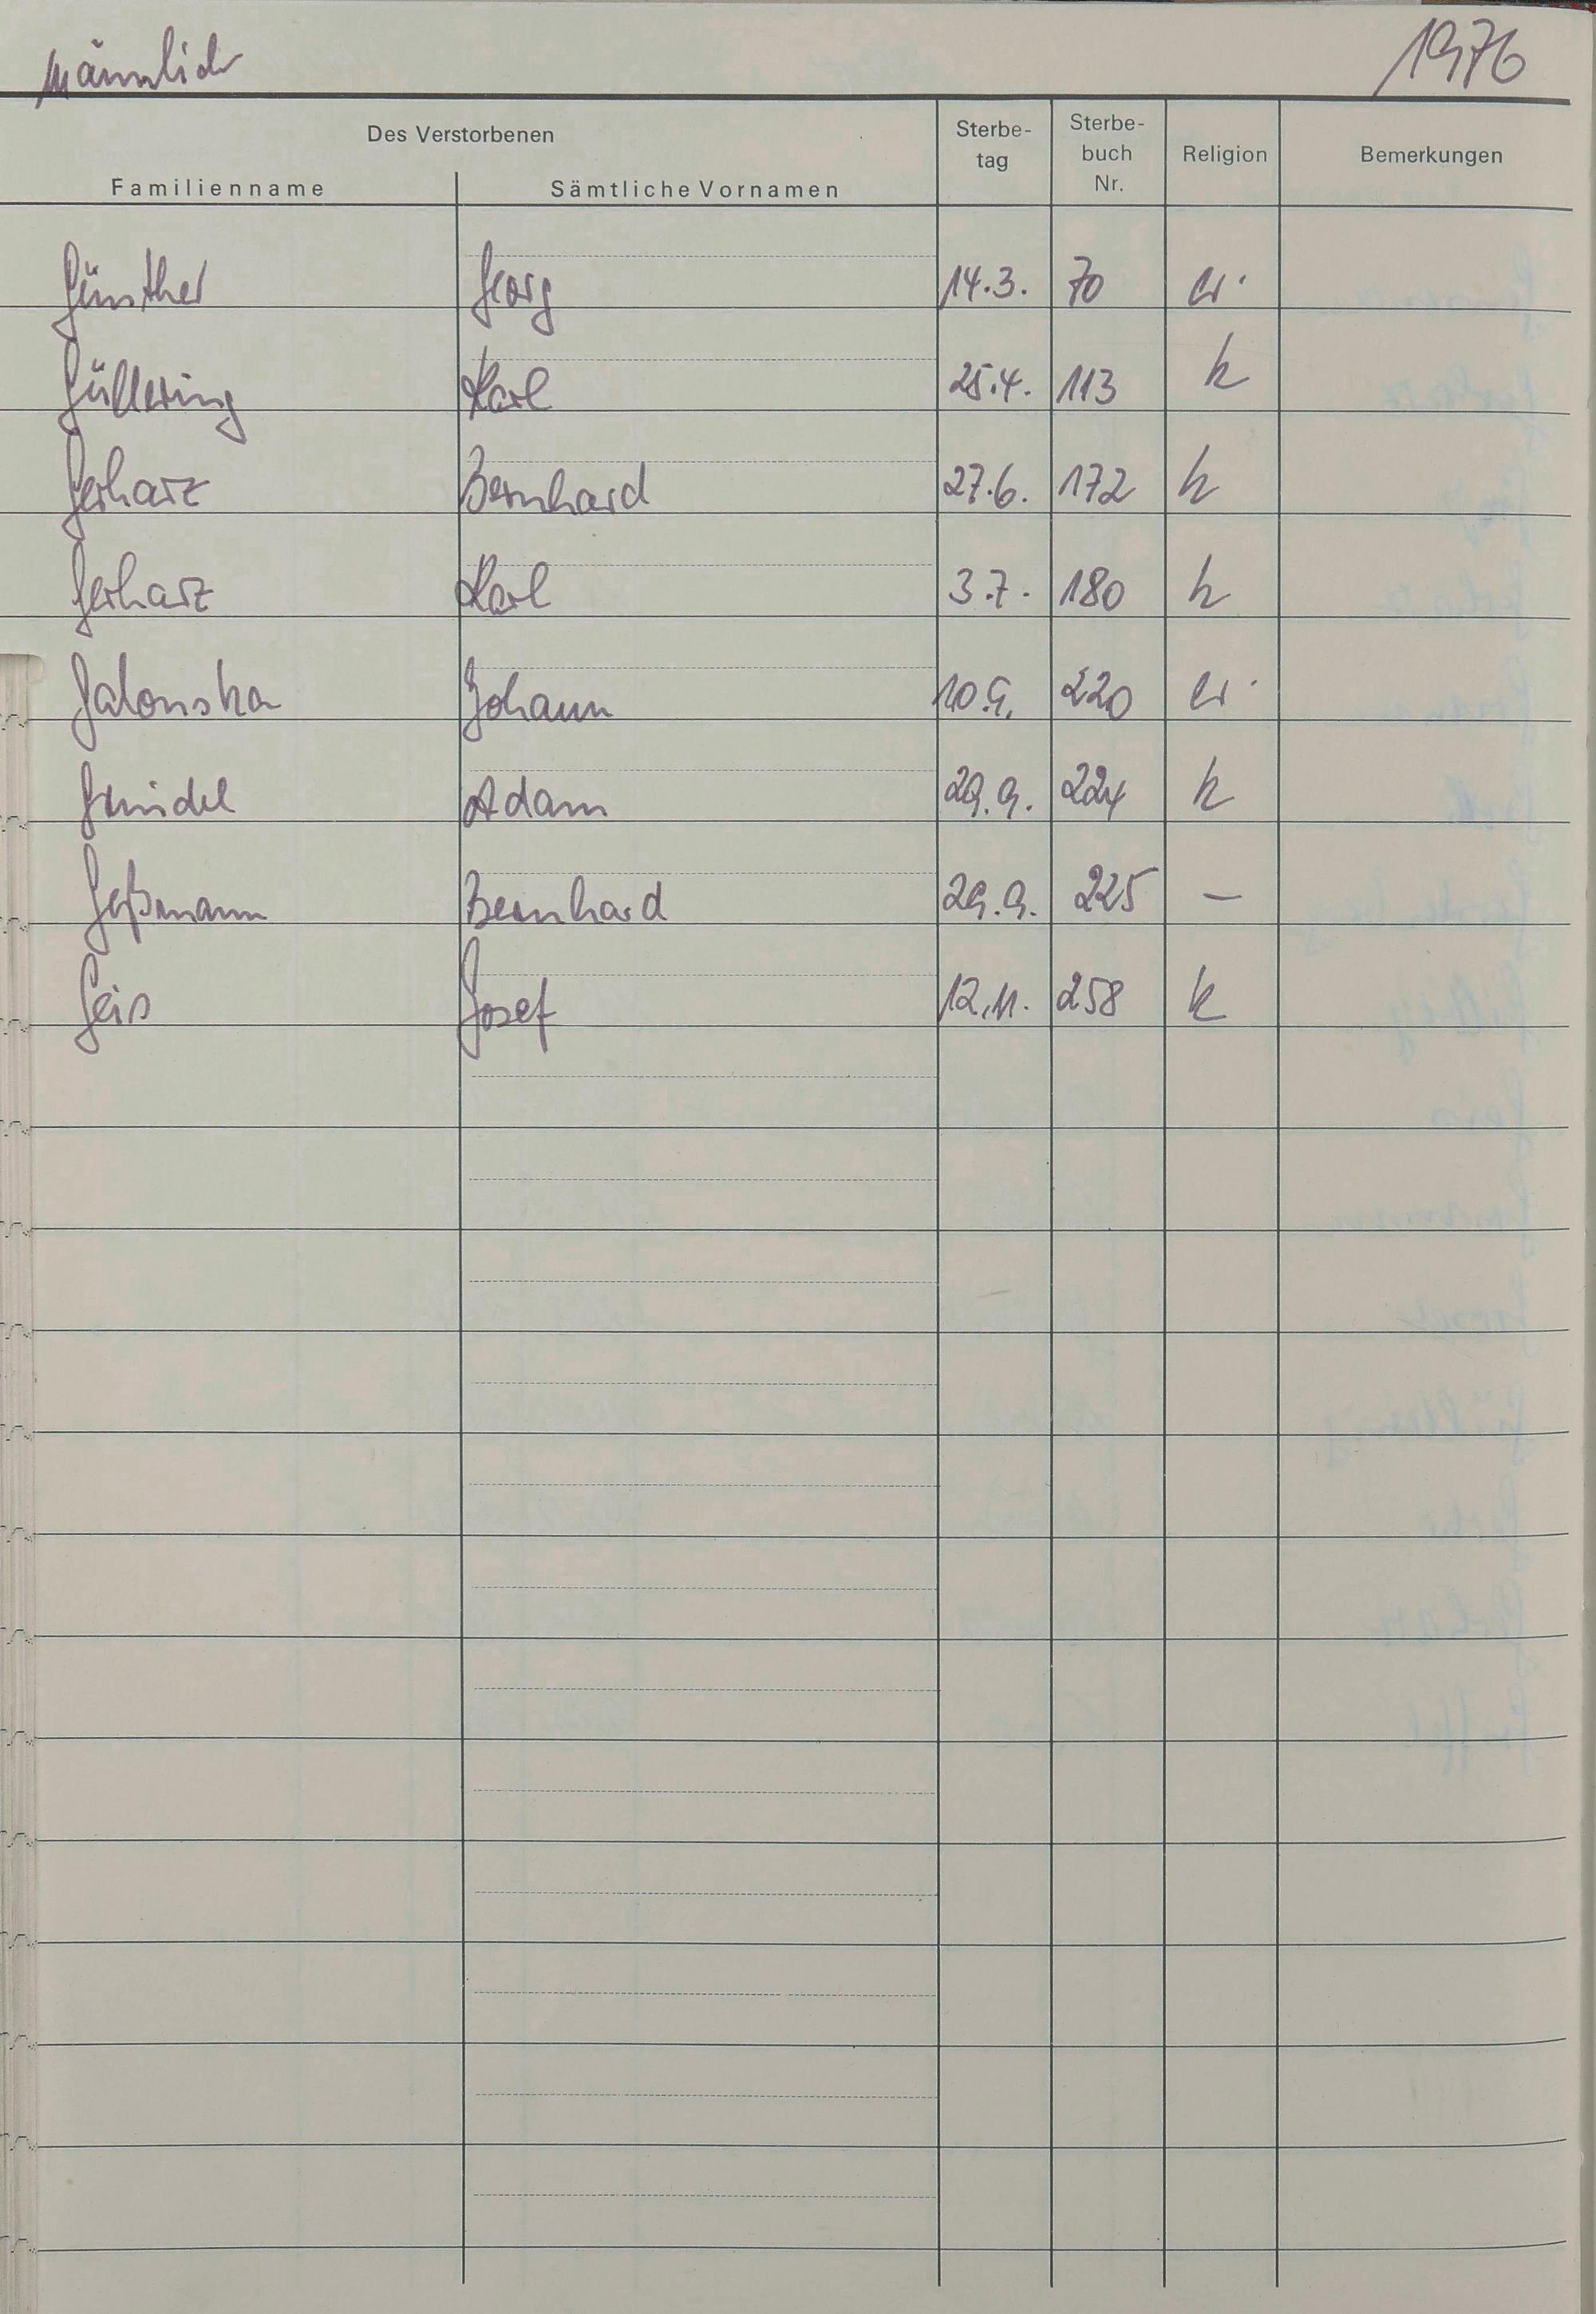 Männlich 1976
Des Verstorbenen Sterbe- tag Sterbe- buch Nr. Religion Bemerkungen
Familienname Sämtliche Vornamen
Günther Georg 14.3. 70 ev.
Güllering Karl 25.4. 113 k
Gerharz Bernhard 27.6. 172 k
Gerharz Karl 3.7. 180 k
Galonska Johann 10.9. 220 ev.
Adam 29.9. 224 k
Geßmann Bernhard 29.9. 225 —
Geis Josef 12.11. 258 k